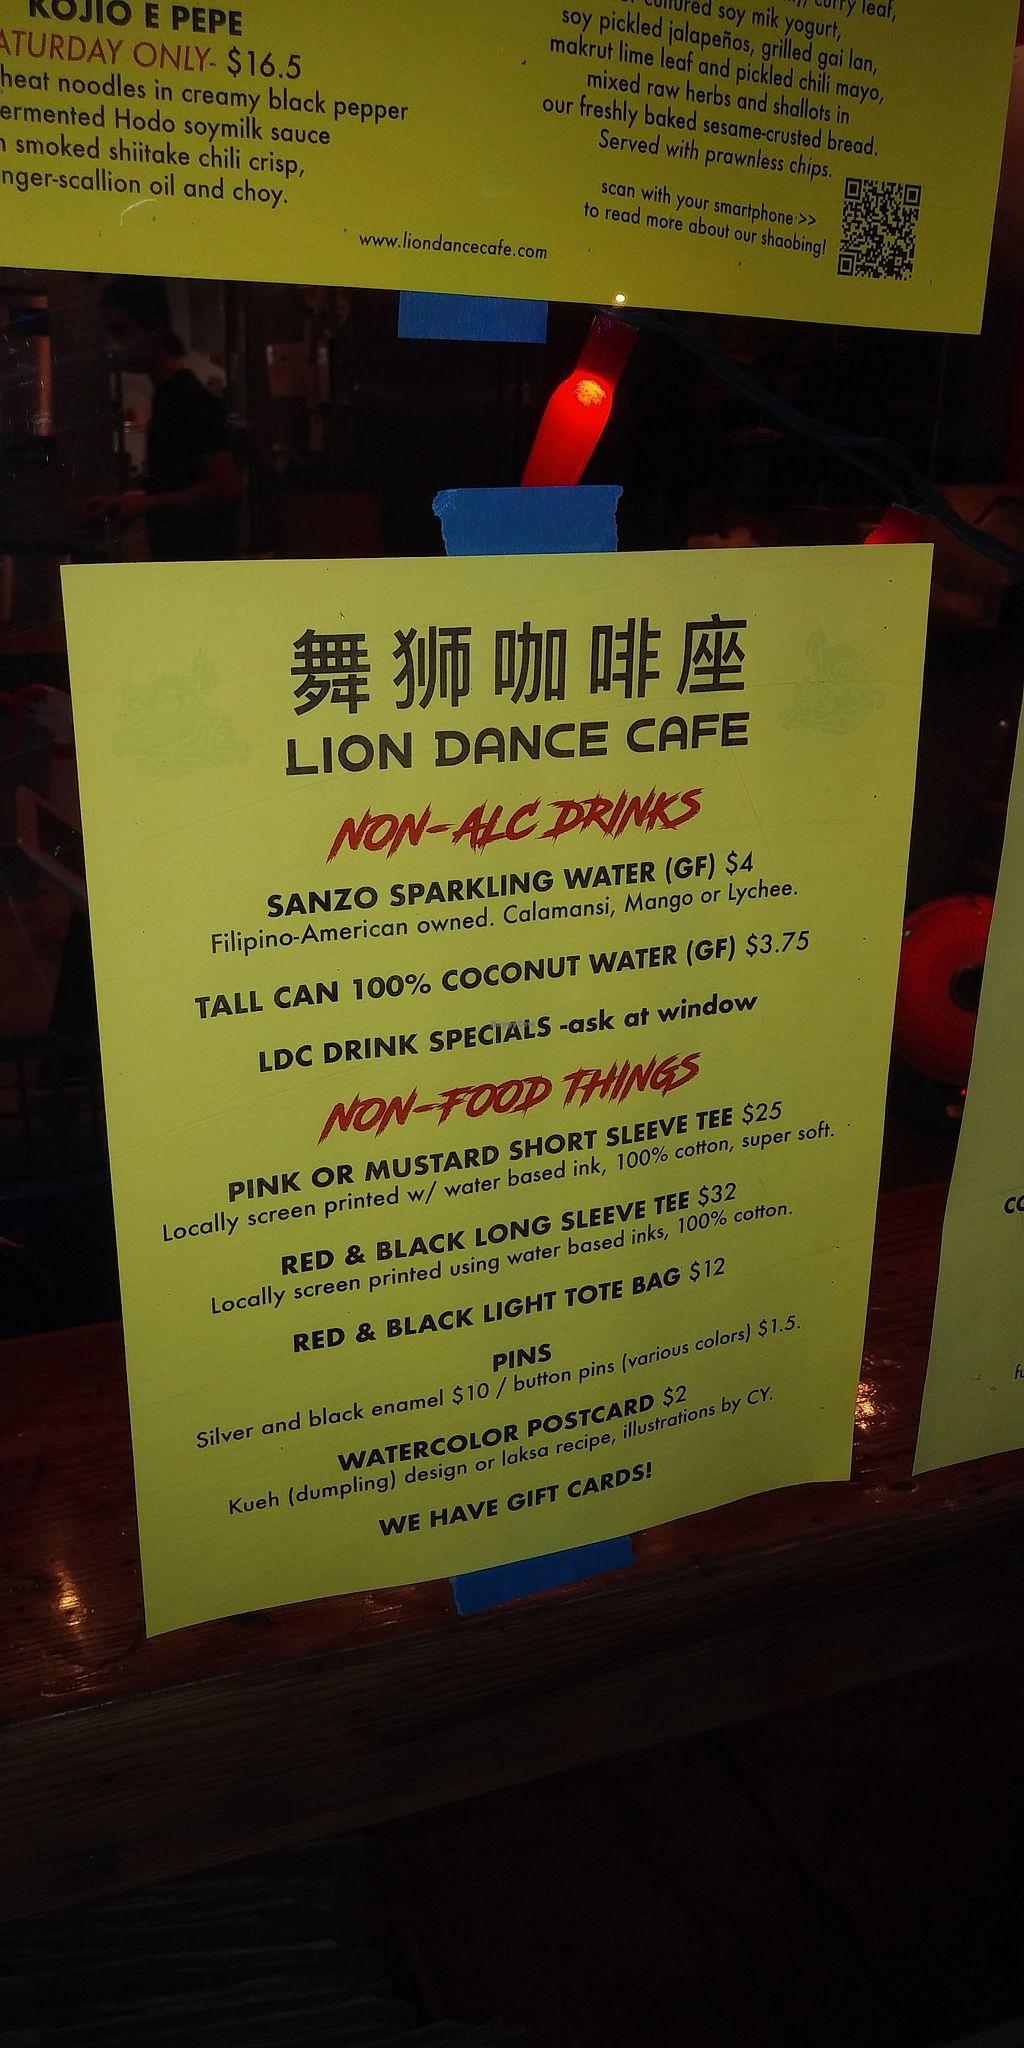 KOJIO E PEPE
ATURDAY ONLY- $16.5
heat noodles in creamy black pepper
ermented Hodo soymilk sauce
smoked shiitake chili crisp,
nger-scallion oil and choy.
www.liondancecafe.com
curry leaf,
cultured soy mik yogurt,
soy pickled jalapeños, grilled gai lan,
makrut lime leaf and pickled chili mayo,
mixed raw herbs and shallots in
our freshly baked sesame-crusted bread.
Served with prawnless chips.
scan with your smartphone >>
to read more about our shaobing!
舞狮咖啡座
LION DANCE CAFE
NON-ALC DRINKS
SANZO SPARKLING WATER (GF) $4
Filipino-American owned. Calamansi, Mango or Lychee.
TALL CAN 100% COCONUT WATER (GF) $3.75
LDC DRINK SPECIALS -ask at window
NON-FOOD THINGS
PINK OR MUSTARD SHORT SLEEVE TEE $25
Locally screen printed w/ water based ink, 100% cotton, super soft.
RED & BLACK LONG SLEEVE TEE $32
Locally screen printed using water based inks, 100% cotton.
RED & BLACK LIGHT TOTE BAG $12
PINS
Silver and black enamel $10 / button pins (various colors) $1.5.
WATERCOLOR POSTCARD $2
Kueh (dumpling) design or laksa recipe, illustrations by CY.
WE HAVE GIFT CARDS!